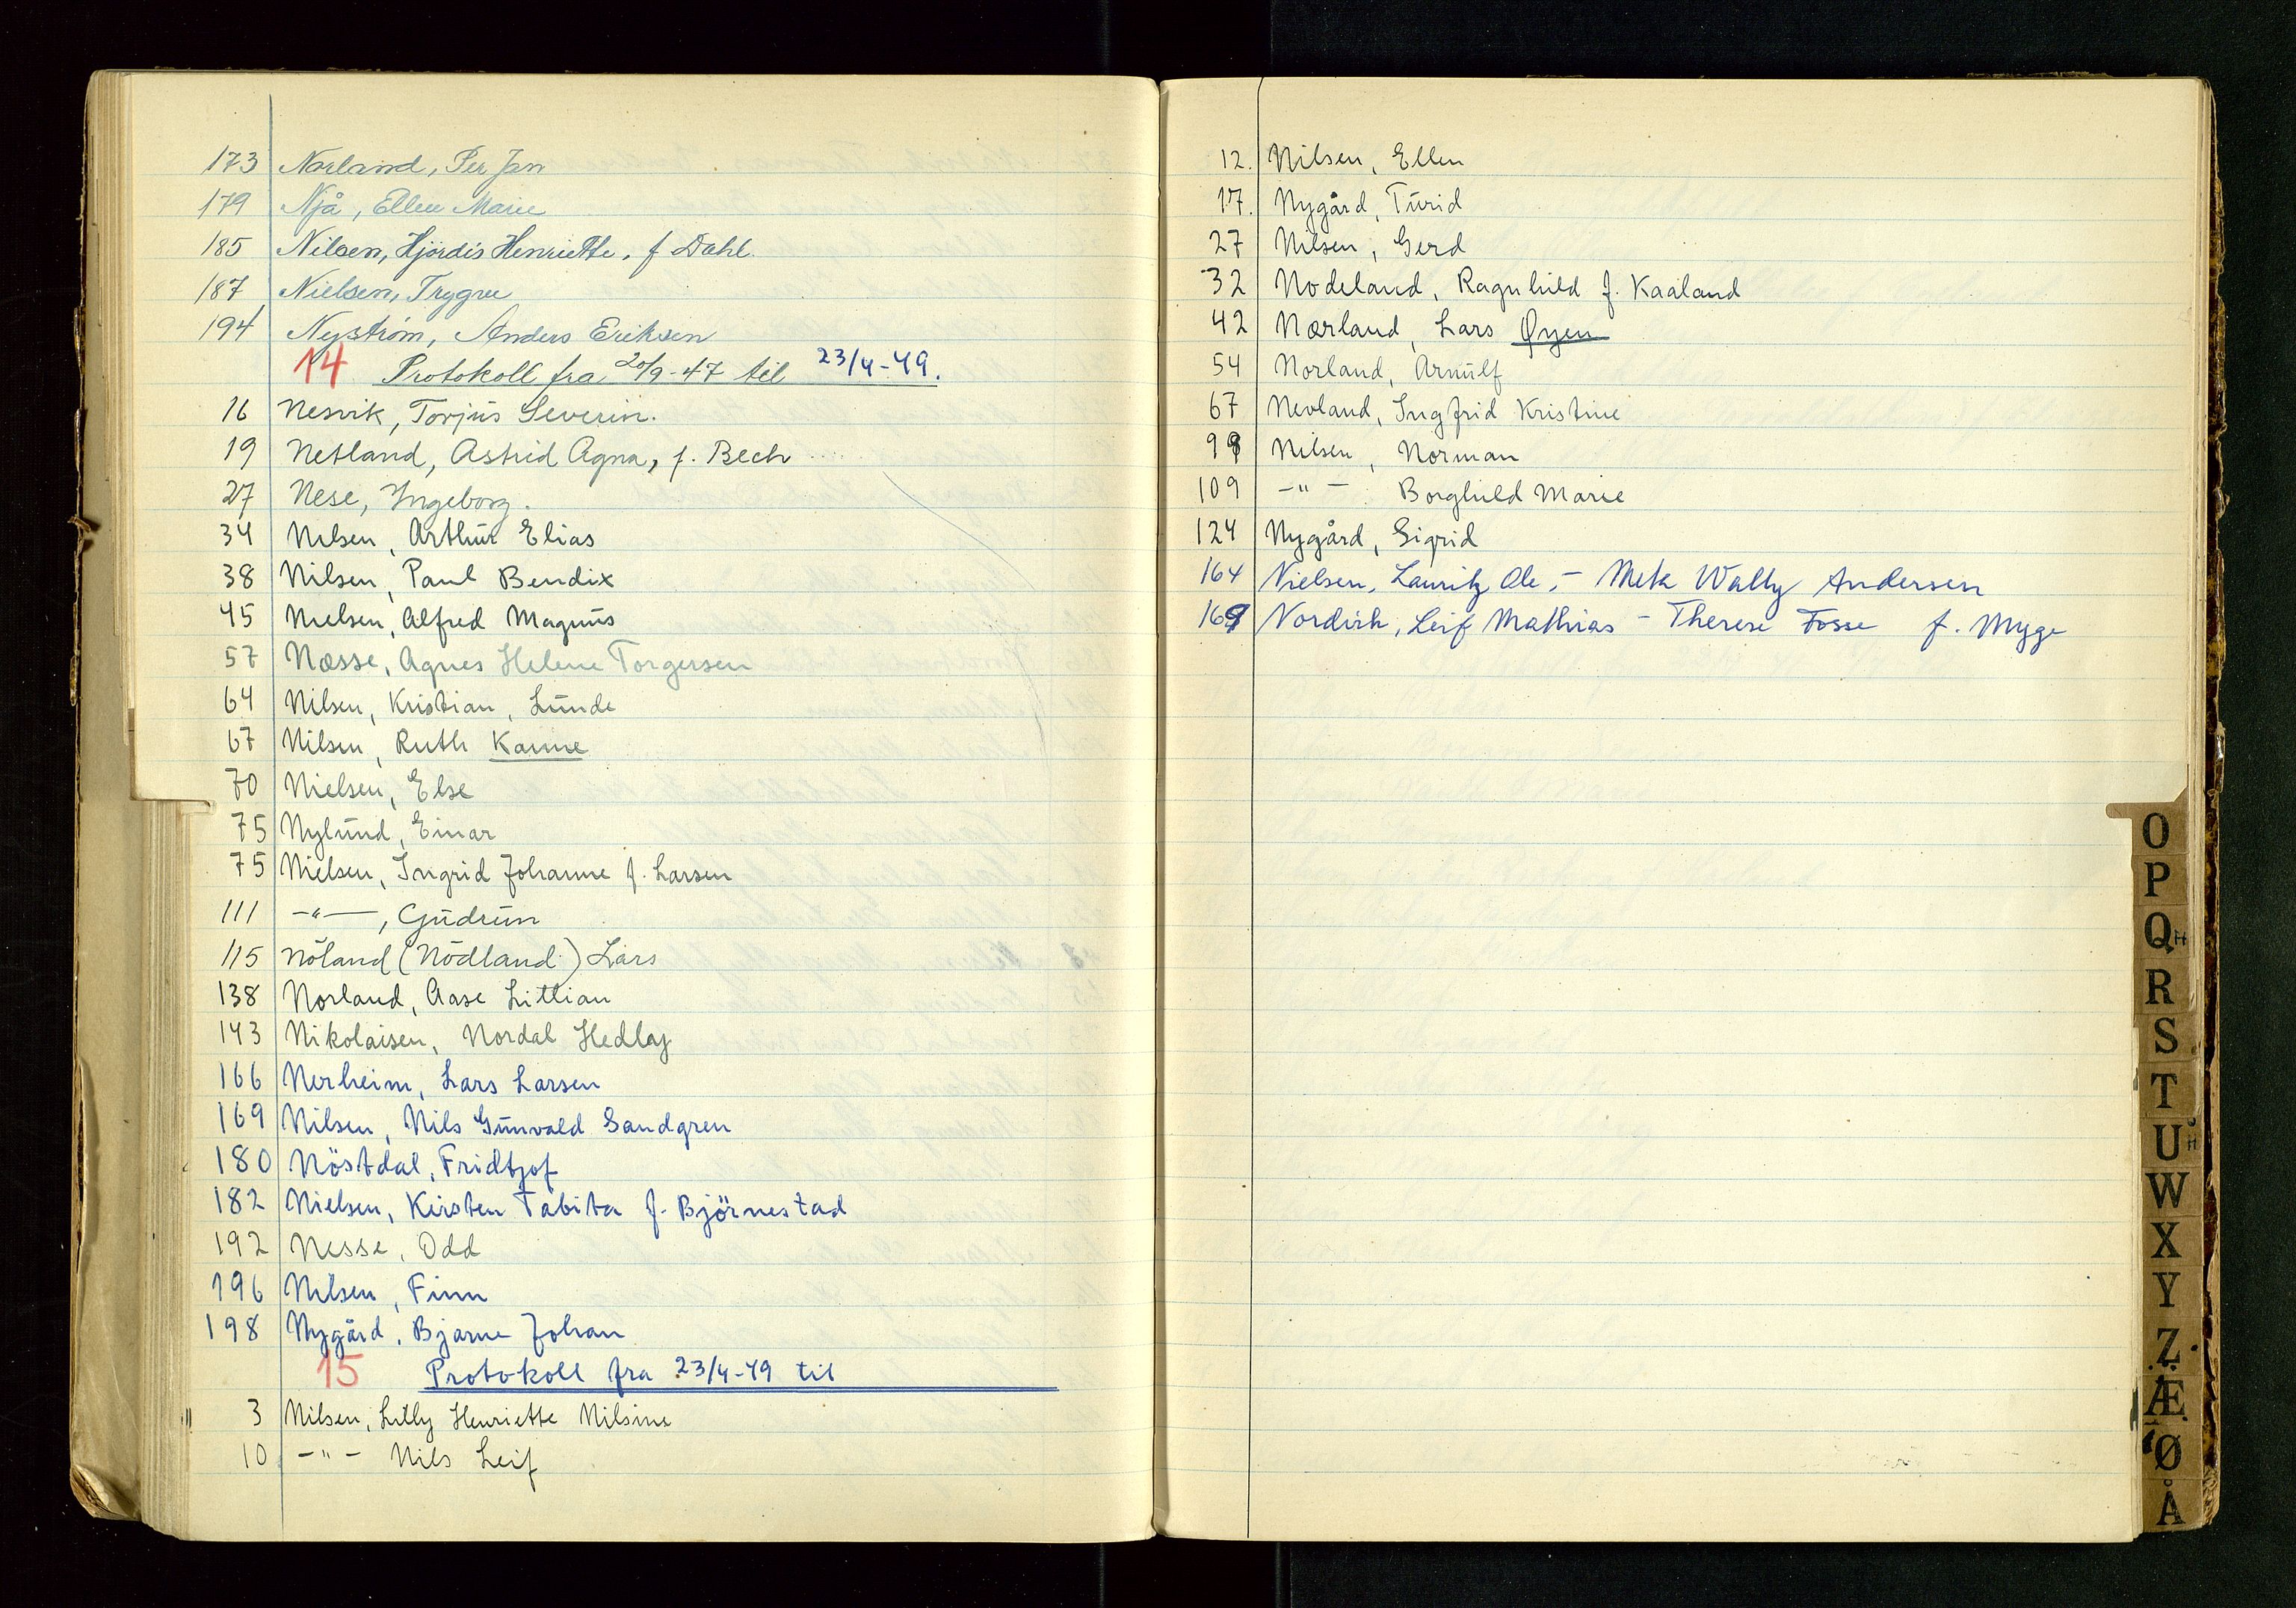 173 Norland, Per Jan
179 Njå, Ellen Marie
185 Nilsen, Hjördis Henriette, f Dahl.
187 Nielsen, Trygve
194 Nyström, Anders Eriksen
14 Protokoll fra 20/9-47 til 23/4-49.
16 Nesvik, Torjus Severin.
19 Netland, Astrid Agna, f. Bech
27 Nese, Ingeborg.
34 Nilsen, Arthur Elias
38 Nilsen, Paul Bendix
45 Nielsen, Alfred Magnus
57 Næsse, Agnes Helene Torgersen
64 Nilsen, Kristian, Lunde
67 Nilsen, Ruth Karine
70 Nielsen, Else
75 Nylund, Einar
75 Nielsen, Ingrid Johanne f. Larsen
111 -"-, Gudrun
115 Nöland (Nödland) Lars
138 Norland, Aase Lillian
143 Nikolaisen, Nordal Hedley
166 Nerheim, Lars Larsen
169 Nilsen, Nils Gunvald Sandgren
180 Nöstdal, Fridtjof
182 Nielsen, Kirsten Tabita f. Björnestad
192 Nesse, Odd
196 Nilsen, Finn
198 Nygård, Bjarne Johan
15 Protokoll fra 23/4-49 til
3 Nilsen, Lilly Henriette Nilsine
10 -"- Nils Leif
12. Nilsen, Ellen
17. Nygård, Turid
27 Nilsen, Gerd
32 Nodeland, Ragnhild f. Kaaland
42 Nærland, Lars Øyen
54 Norland, Arnulf
67 Nevland, Ingfrid Kristine
98 Nilsen, Norman
109 -"- Borghild Marie
124 Nygård, Sigrid
164 Nielsen, Lauritz Ole, - Wally Andersen
169 Nordirk, Leif Mathias - Therese Fosse f. Myge
O
P
Q
R
S
T
U
W
X
Y
Z
Æ
Ø
Å